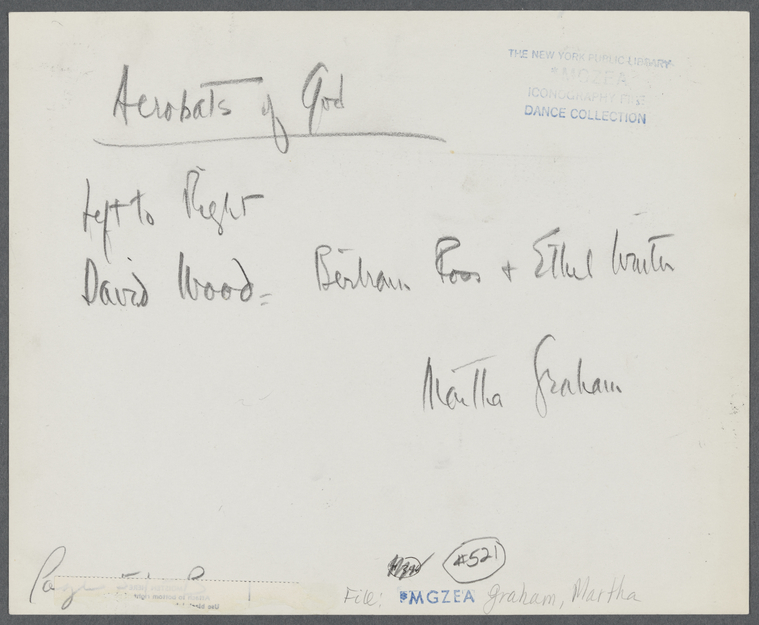 THE NEW YORK PUBLIC LIBRARY
*MGZEA
ICONOGRAPHY FILE
DANCE COLLECTION
Acrobats of God
Left to Right
David Wood = Bertram Ross + Ethel Winter
Martha Graham
#521
File: *MGZEA Graham, Martha